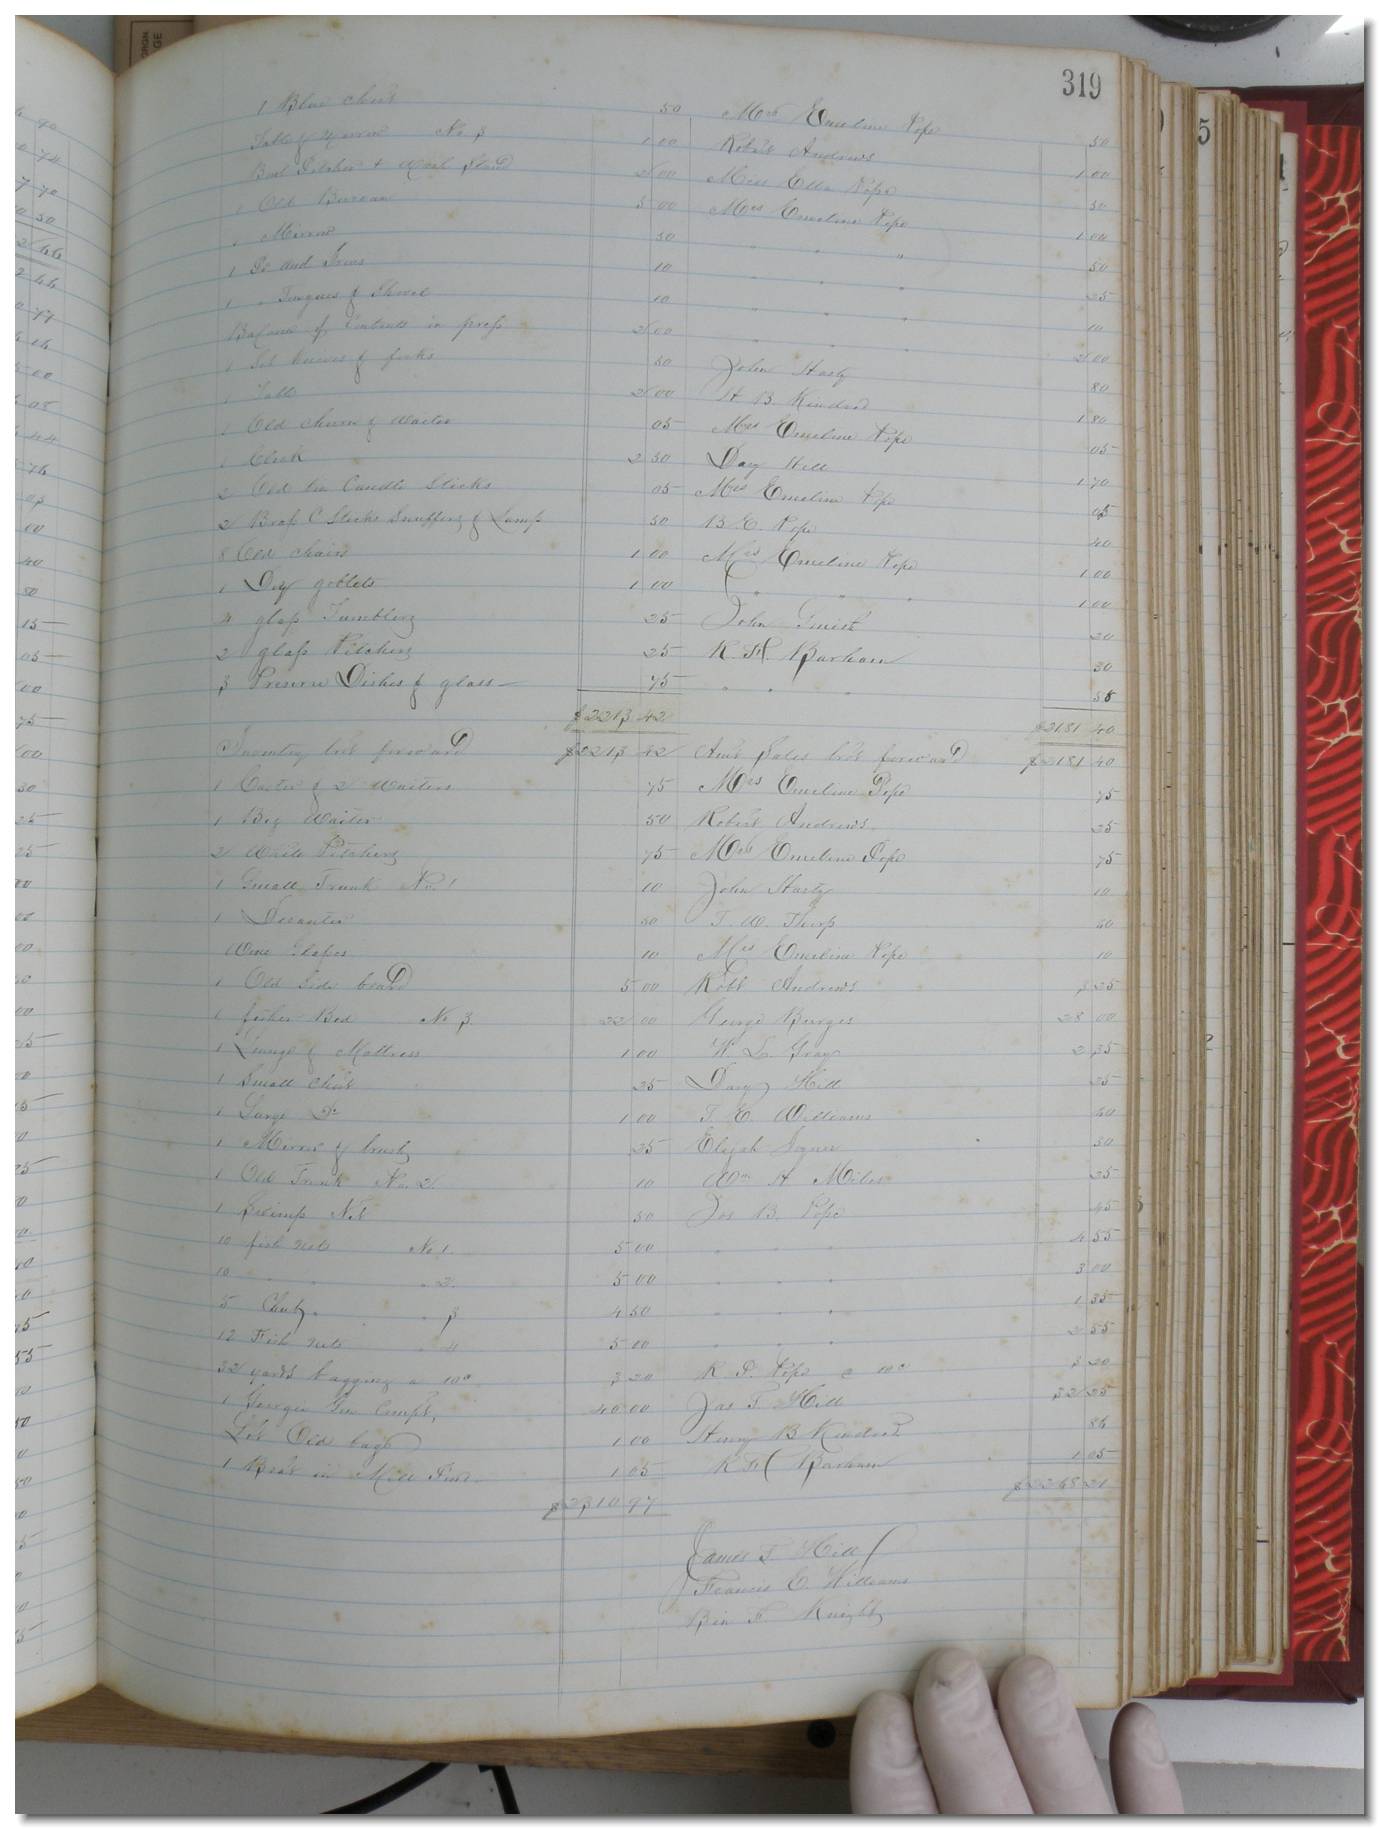 319
1 Blue chest 50 Mrs Emeline Pope 50
Table & Mirror No 3 1 00 Robert Andrews 1 00
Bowl Pitcher & Wash Stand 2 00 Miss Ella Pope 50
1 Old Bureau 5 00 Mrs Emeline Pope 1 00
1 Mirror 50 " " " 50
1 Pr and Irons 10 " " 25
1 " Tongues & Shovel 10 " " " 10
Balance of Contents in press 2 00 " " " 2 00
1 Set knives & forks 50 John Harty 80
1 Table 2 00 H B. Kindred 1 80
1 Old Churn & Waiter 05 Mrs Emeline Pope 05
1 Clock 2 50 Day Hill 1 70
2 Old tin Candle Sticks 05 Mrs Emeline Pope 05
2 Brass C Sticks Snuffers & Lamp 50 B. E. Pope 40
8 Old chairs 1 00 Mrs Emeline Pope 1 00
1 Doz goblets 1 00 " " " 1 00
4 glass Tumblers 25 John 20
2 glass Pitchers 25 R. H. Barham 30
3 Preserve Dishes & glass 75 " " " 55
$2213 42 $2181 40
Inventory bro't forward $2213 42 Am't Sales bro't forward $2181 40
1 Caster & 2 Waiters 75 Mrs Emeline Pope 75
1 Big Waiter 50 Robert Andrews. 25
2 White Pitchers 75 Mrs Emeline Pope 75
1 Small Trunk No. 1 10 John Harty 10
1 Decanter 50 T. W. Thorp 40
Wine Glasses 10 Mrs Emeline Pope 10
1 Old Side board 5 00 Robt Andrews 3 25
1 fether Bed No 3 22 00 George Burges 28 00
1 Lounge & Mattress 1 00 W. L. Gray 2 35
1 Small Chest 25 Day Hill 25
1 Large Do 1 00 F. E. Williams 40
1 Mirror & brush 25 Elijah Joyner 30
1 Old Trunk No. 2 10 Wm H Miles 25
1 Skimp Net 50 Jos B. Pope 45
10 fish nets No 1. 5 00 " " " 4 55
10 " " " 2. 5 00 " " " 3 00
5 " " 3 4 50 " " " 1 35
12 Fish nets " 4 5 00 " " " 2 55
32 yards bagging a 10c 3 20 R. P. Pope @ 10c 3 20
1 Georgia Gin Compt, 40 00 Jas T. Hill 32 25
Lot Old bags 1 00 Henry B Kindred 86
1 Boat in Mill Pond 1 05 R H Barham 1 05
$2310 97 $2268 21
James T. Hill
Francis E. Williams
Ben F. Knight